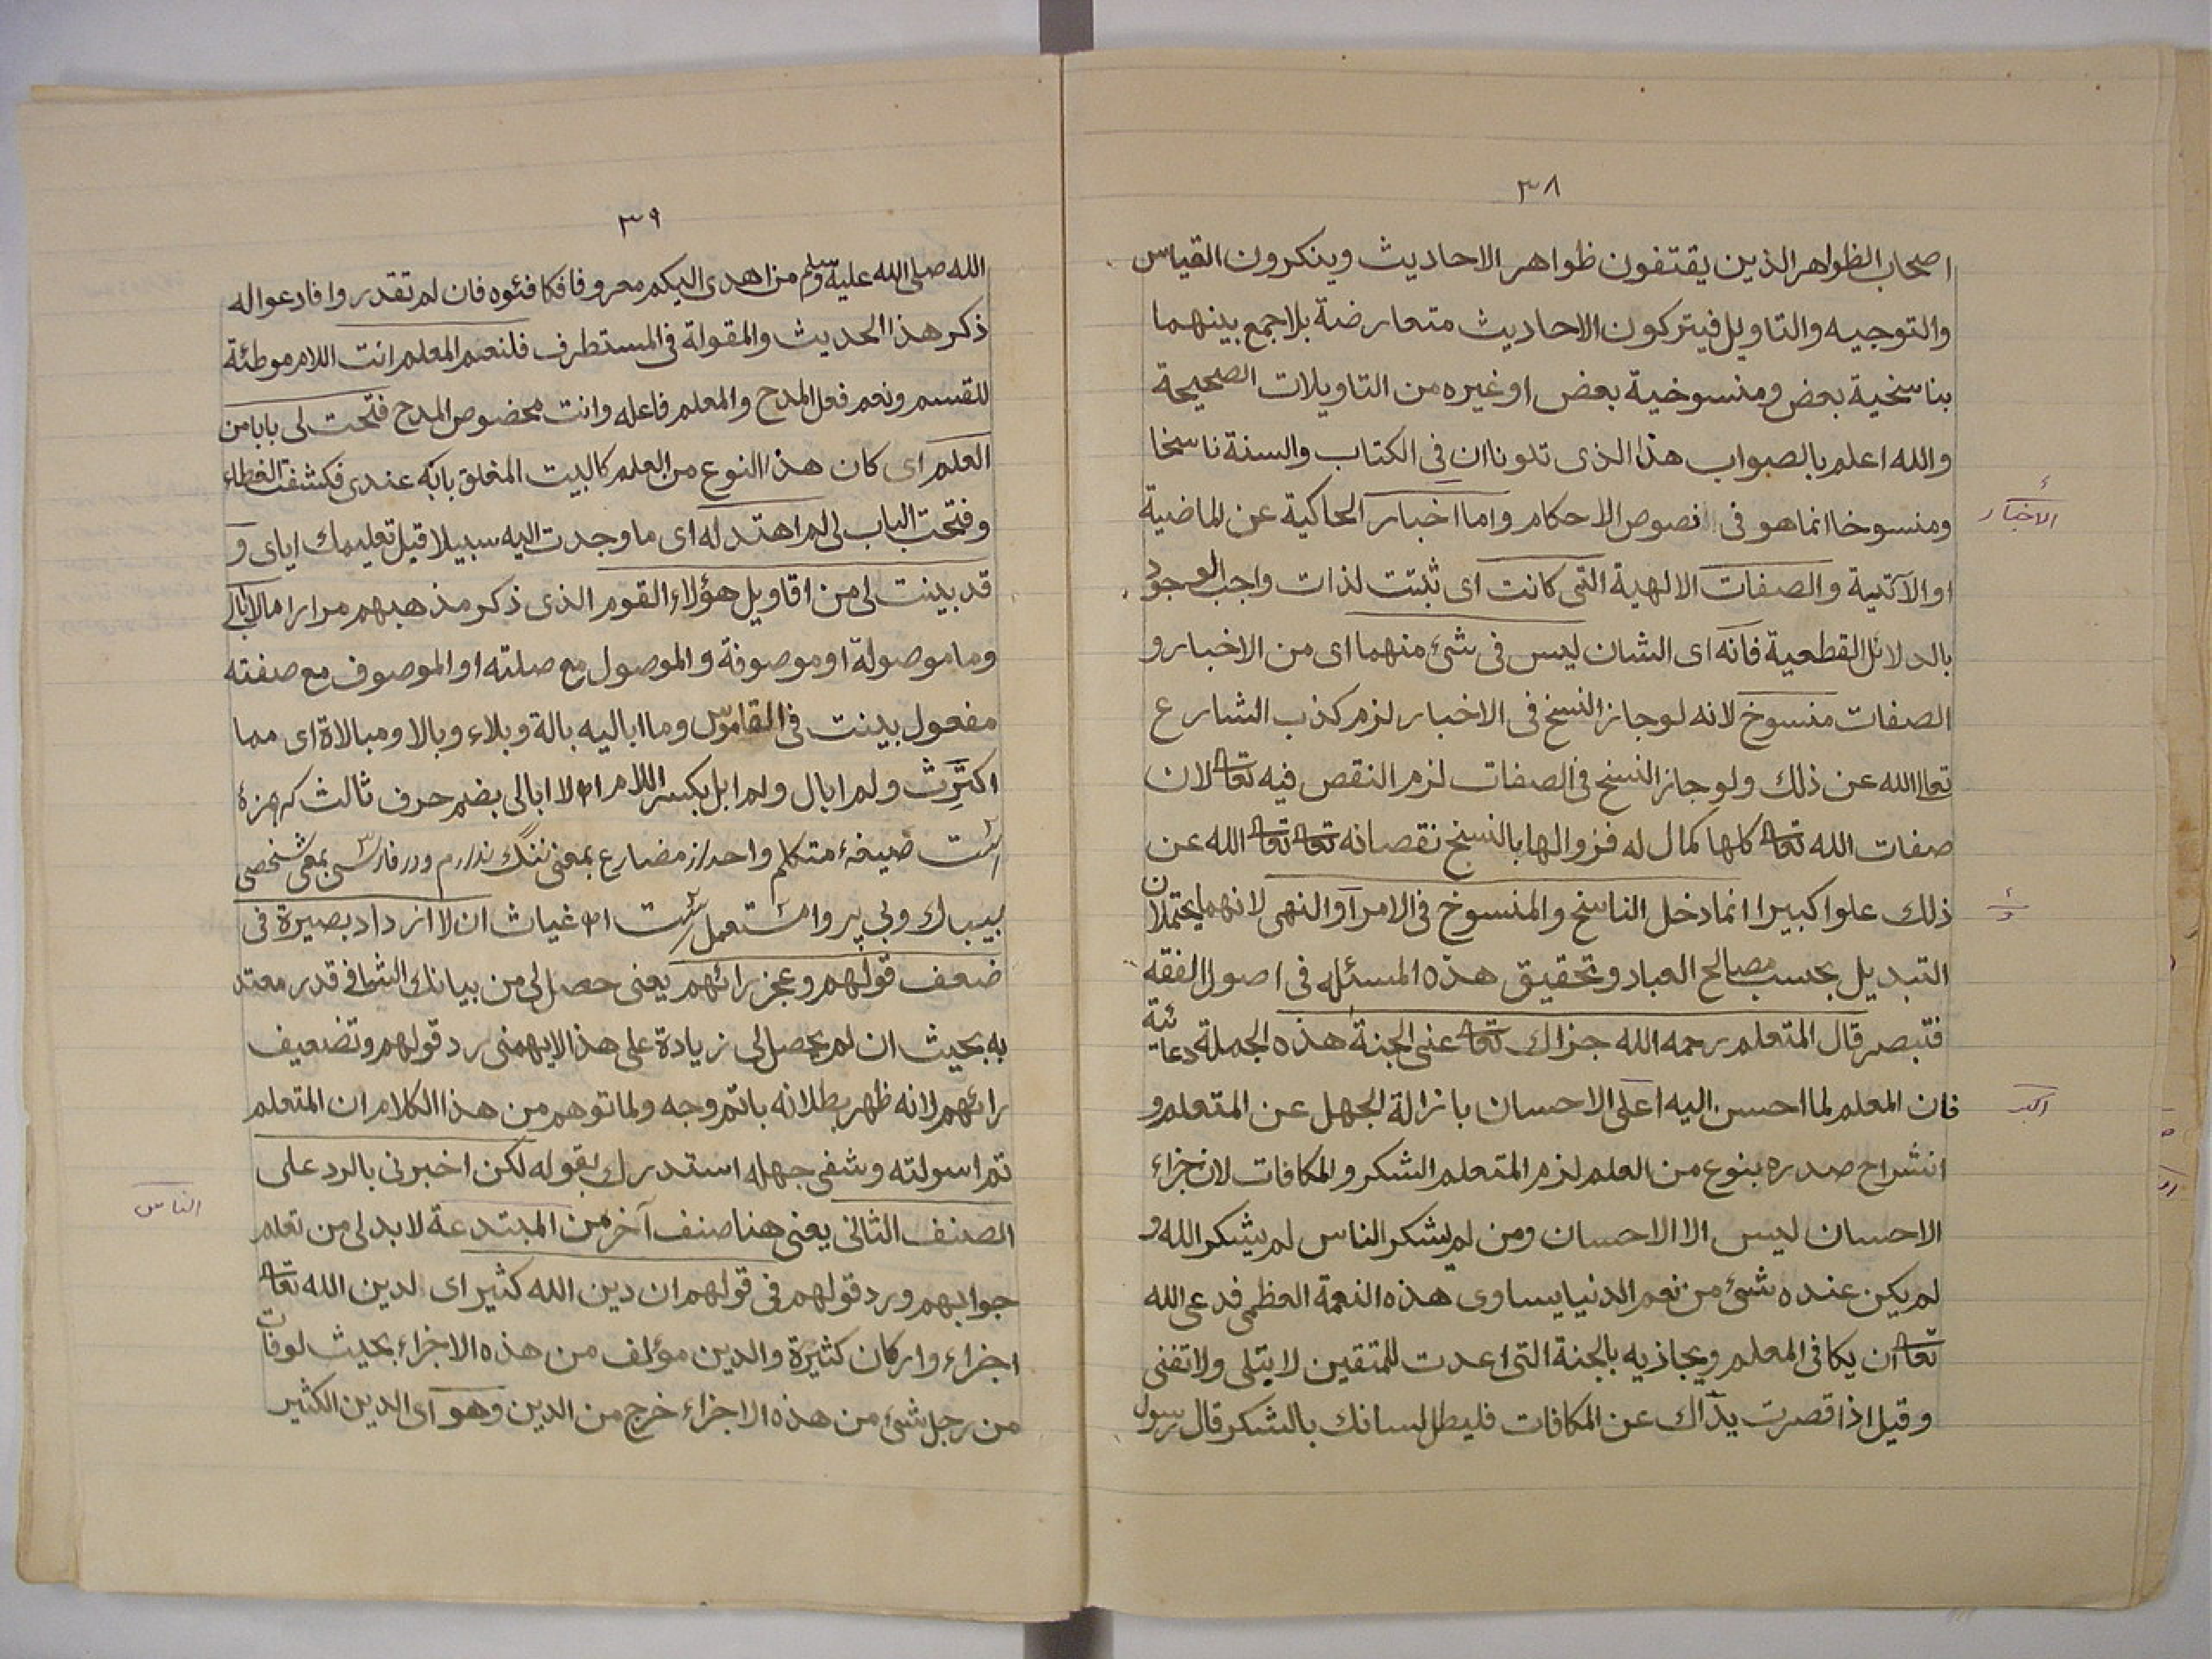 ٣٨
اصحاب الظواهر الذين يقتفون ظواهر الاحاديث وينكرون القياس
والتوجيه والتاويل فيتركون الاحاديث متعارضة بلا جمع بينهما
بناسخية بعض ومنسوخية بعض او غيره من التاويلات الصحيحة
والله اعلم بالصواب هذا الذى تلونا ان فى الكتاب والسنة ناسخا
ومنسوخا انما هو فى نصوص الاحكام واما اخبار الحاكية عن الماضية
الاخبار
او الآتية والصفات الالهية التى كانت اى ثبتت لذات واجب الوجود
بالدلائل القطعية فانه اى الشان ليس فى شئ منهما اى من الاخبار و
الصفات منسوخ لانه لو جاز النسخ فى الاخبار لزم كذب الشارع
تعالى الله عن ذلك ولو جاز النسخ فى الصفات لزم النقص فيه تعا لان
صفات الله تعا كلها كمال له فزوالها بالنسخ نقصانه تعا تعا الله عن
ذلك علوا كبيرا انما دخل الناسخ والمنسوخ فى الامر او النهى لانهما يحتملان
و
التبديل بحسب مصالح العباد وتحقيق هذه المسئلة فى اصول الفقه
فتبصر قال المتعلم رحمه الله جزاك تعا عنى الجنة هذه الجملة دعائية
فان المعلم لما احسن اليه اعلى الاحسان بازالة الجهل عن المتعلم و
انشراح صدره بنوع من العلم لزم المتعلم الشكر والمكافات لان جزاء
الاحسان ليس الا الاحسان ومن لم يشكر الناس لم يشكر الله و
لم يكن عنده شئ من نعم الدنيا يساوى هذه النعمة العظمى فدعى الله
تعا ان يكافى المعلم ويجاذيه بالجنة التى اعدت للمتقين لا يبتلى ولا تفنى
وقيل اذا قصرت يداك عن المكافات فليطل لسانك بالشكر قال رسول
٣٩
الله صلى الله عليه وسلم من اهدى اليكم معروفا فكافئوه فان لم تقدروا فادعوا له
ذكر هذا الحديث والمقولة فى المستطرف فلنعم المعلم انت اللام موطئة
للقسم ونعم فعل المدح والمعلم فاعله وانت مخصوص المدح فتحت لى بابا من
العلم اى كان هذا النوع من العلم كالبيت المغلق بابه عندى فكشفت الغطاء
وفتحت الباب لى لم اهتد له اى ما وجدت اليه سبيلا قبل تعليمك اياى و
قد بينت لى من اقاويل هؤلاء القوم الذى ذكر مذهبهم مرارا ما لا ابالى
وما موصولة او موصوفة والموصول مع صلته او الموصوف مع صفته
مفعول بينت فى القاموس وما اباليه بالة وبلاء وبالا ومبالاة اى مما
اكترث ولم ابال ولم ابل بكسر اللام اھ لا ابالى بضم حرف ثالث كه همزه
است صيغهٔ متكلم واحد از مضارع بمعنى ننگ ندارم ودر فارسى بمعنى شخصى
بيباك وبى پروا مستعمل است اھ غياث ان لا ازداد بصيرة فى
ضعف قولهم وعجز رائهم يعنى حصل لى من بيانك الشافى قدر معتد
به بحيث ان لم يحصل لى زيادة على هذا لا يهمنى رد قولهم وتضعيف
رائهم لانه ظهر بطلانه باتم وجه ولما توهم من هذا الكلام ان المتعلم
تم اسولته وشفى جهله استدرك بقوله لكن اخبرنى بالرد على
الصنف الثانى يعنى هنا صنف آخر من المبتدعة لا بد لى من تعلم
الناس
جوابهم ورد قولهم فى قولهم ان دين الله كثير اى لدين الله تعا
اجزاء واركان كثيرة والدين مؤلف من هذه الاجزاء بحيث لو فات
من رجل شئ من هذه الاجزاء خرج من الدين وهو اى الدين الكثير